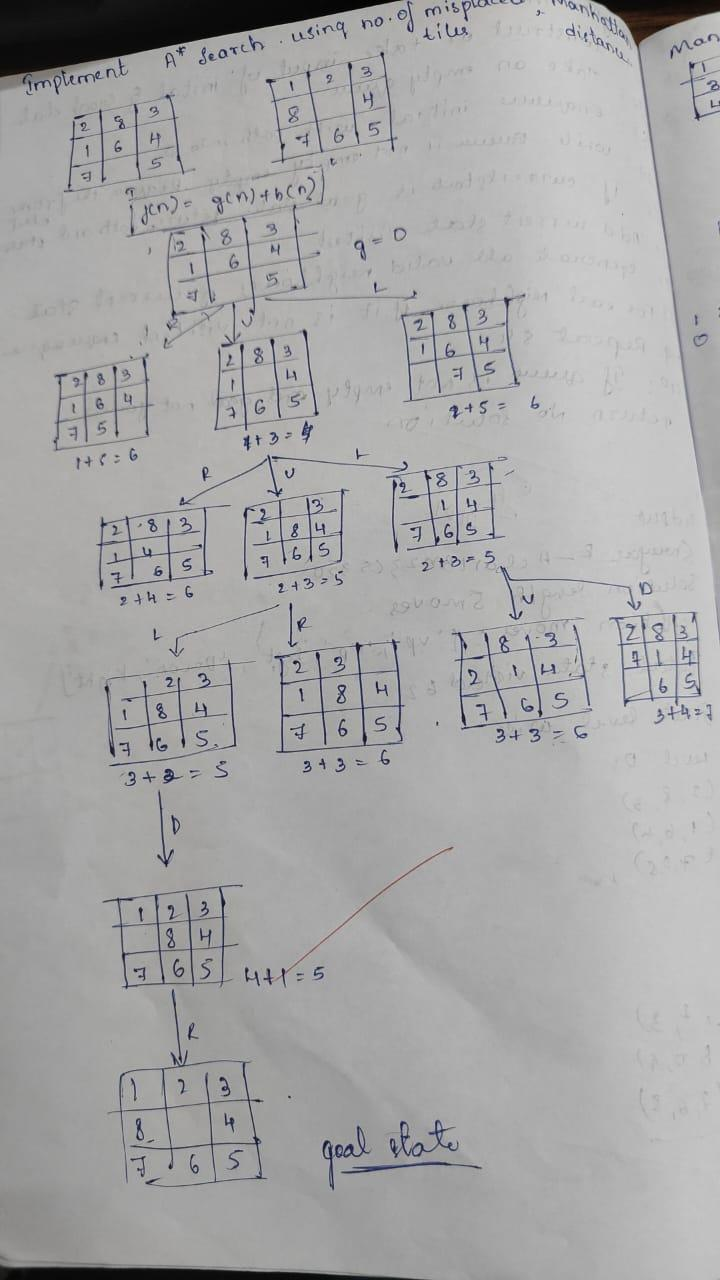 Implement A* Search using no. of misplaced tiles, Manhattan distance
2 8 3
1 6 4
7 5
1 2 3
8 4
7 6 5
f(n) = g(n) + h(n)
2 8 3
1 6 4
7 5
g = 0
R U L
2 8 3
1 6 4
7 5
1+5 = 6
2 8 3
1 4
7 6 5
1+3 = 4
2 8 3
1 6 4
7 5
2+5 = 6
R U L
2 8 3
1 4
7 6 5
2+4 = 6
2 3
1 8 4
7 6 5
2+3 = 5
2 8 3
1 4
7 6 5
2+3 = 5
L R U D
2 3
1 8 4
7 6 5
3+2 = 5
2 3
1 8 4
7 6 5
3+3 = 6
8 3
2 1 4
7 6 5
3+3 = 6
2 8 3
7 1 4
6 5
3+4 = 7
D
1 2 3
8 4
7 6 5
4+1 = 5
R
1 2 3
8 4
7 6 5
goal state
Man
1